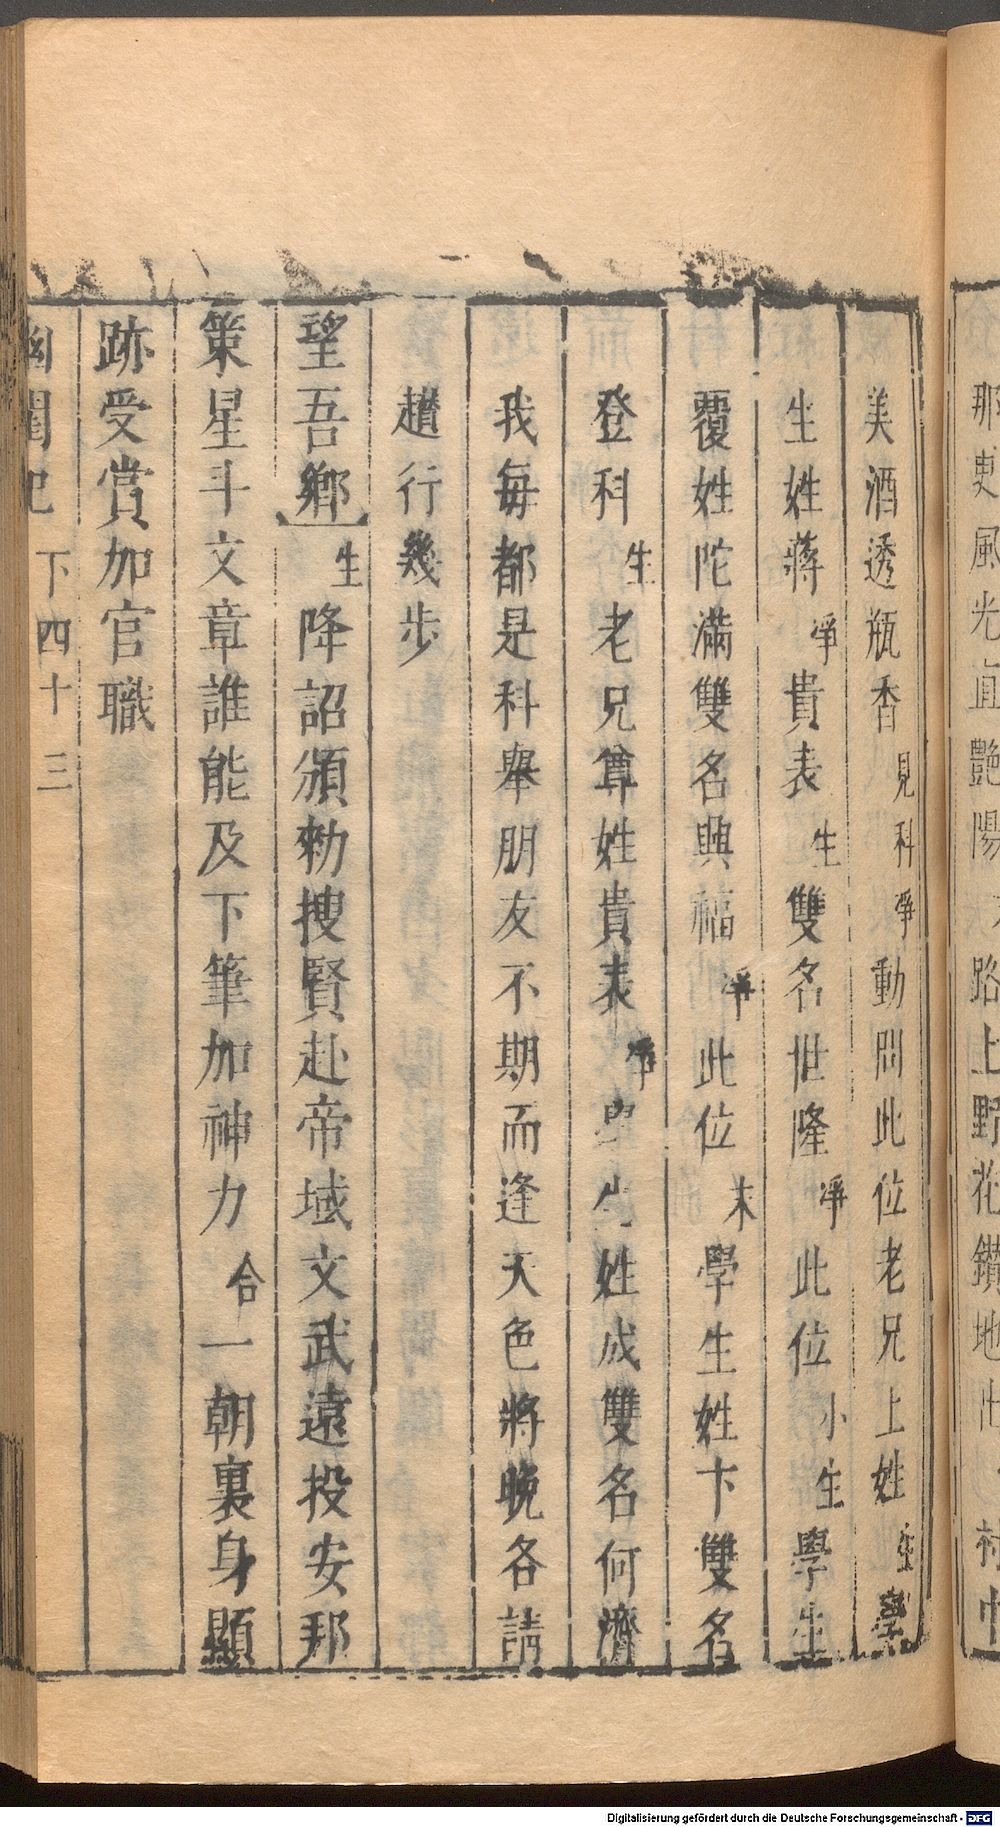 那更風光直艷陽 路上野花鑽地出 村中
美酒透瓶香見科淨動問此位老兄上姓生學
生姓蔣淨貴表生雙名世隆淨此位小生學生
覆姓陀滿雙名興福淨此位末學生姓卞雙名
登科生老兄尊姓貴表淨學生姓成雙名何濟
我每都是科舉朋友不期而逢天色將晚各請
趲行幾步
望吾鄉生降詔頒勑搜賢赴帝域文武遠投安邦
策星斗文章誰能及下筆加神力合一朝裏身顯
跡受賞加官職
幽閨記 下四十三
Digitalisierung gefördert durch die Deutsche Forschungsgemeinschaft - DFG